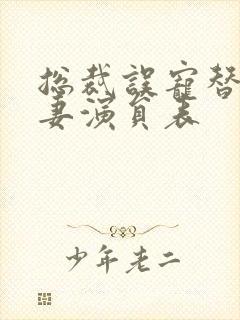 总裁误宠替
妻演员表
少年老二